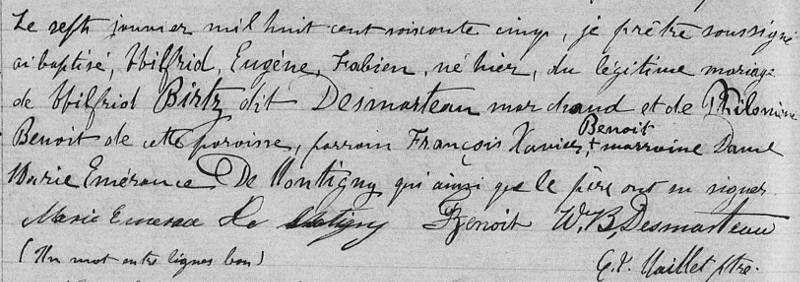 Le sept janvier mil huit cent soixante cinq, je prêtre soussigné
ai baptisé, Wilfrid, Eugène, Fabien, né hier, du légitime mariage
de Wilfrid Birtz dit Desmarteau marchand et de Philomène
Benoit de cette paroisse, parrain François Xavier Benoit + marraine Dame
Marie Emérance De Montigny qui ainsi que le père ont su signer.
Marie Emerance De Montigny F X Benoit W. B. Desmarteau
(Un mot entre lignes bon)
Maillet ptre.